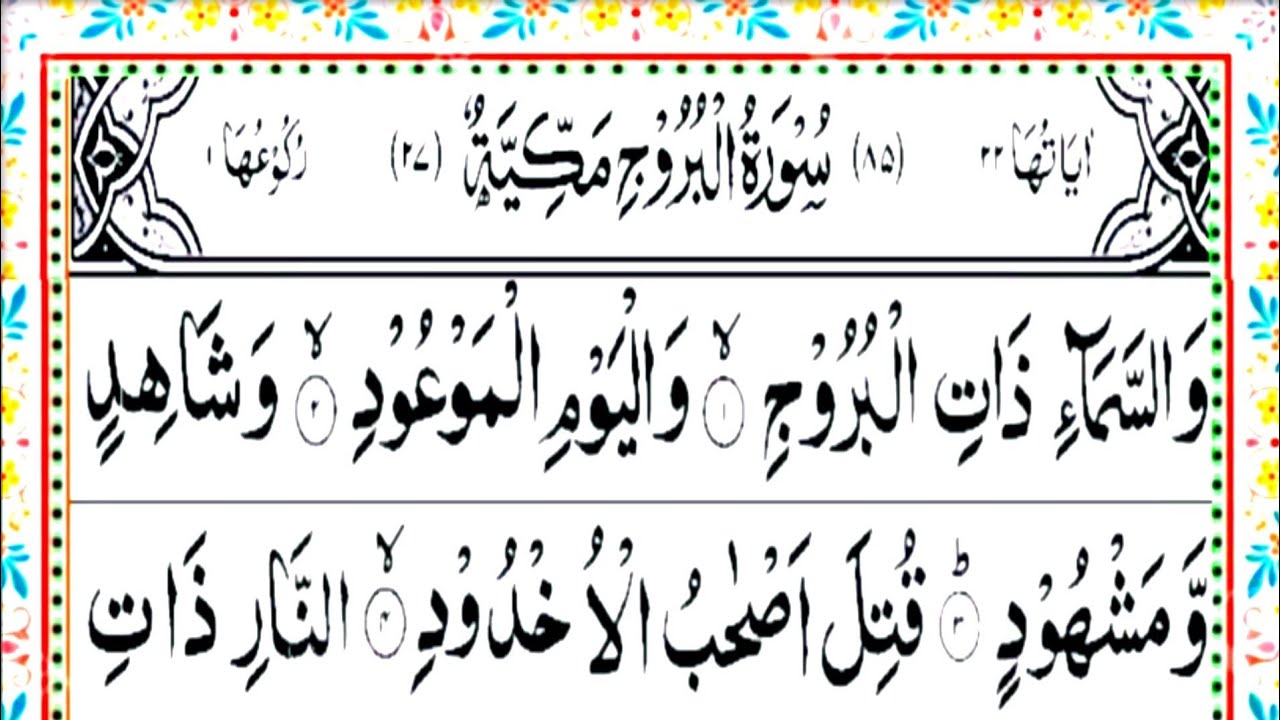 اٰيَاتُهَا ٢٢ (٨٥) سُوْرَةُ الْبُرُوْجِ مَكِّيَّةٌ (٢٧) رُكُوْعُهَا ١
وَالسَّمَآءِ ذَاتِ الْبُرُوْجِ ۙ﴿١﴾ وَالْيَوْمِ الْمَوْعُوْدِ ۙ﴿٢﴾ وَشَاهِدٍ
وَّمَشْهُوْدٍ ؕ﴿٣﴾ قُتِلَ اَصْحٰبُ الْاُخْدُوْدِ ۙ﴿٤﴾ النَّارِ ذَاتِ